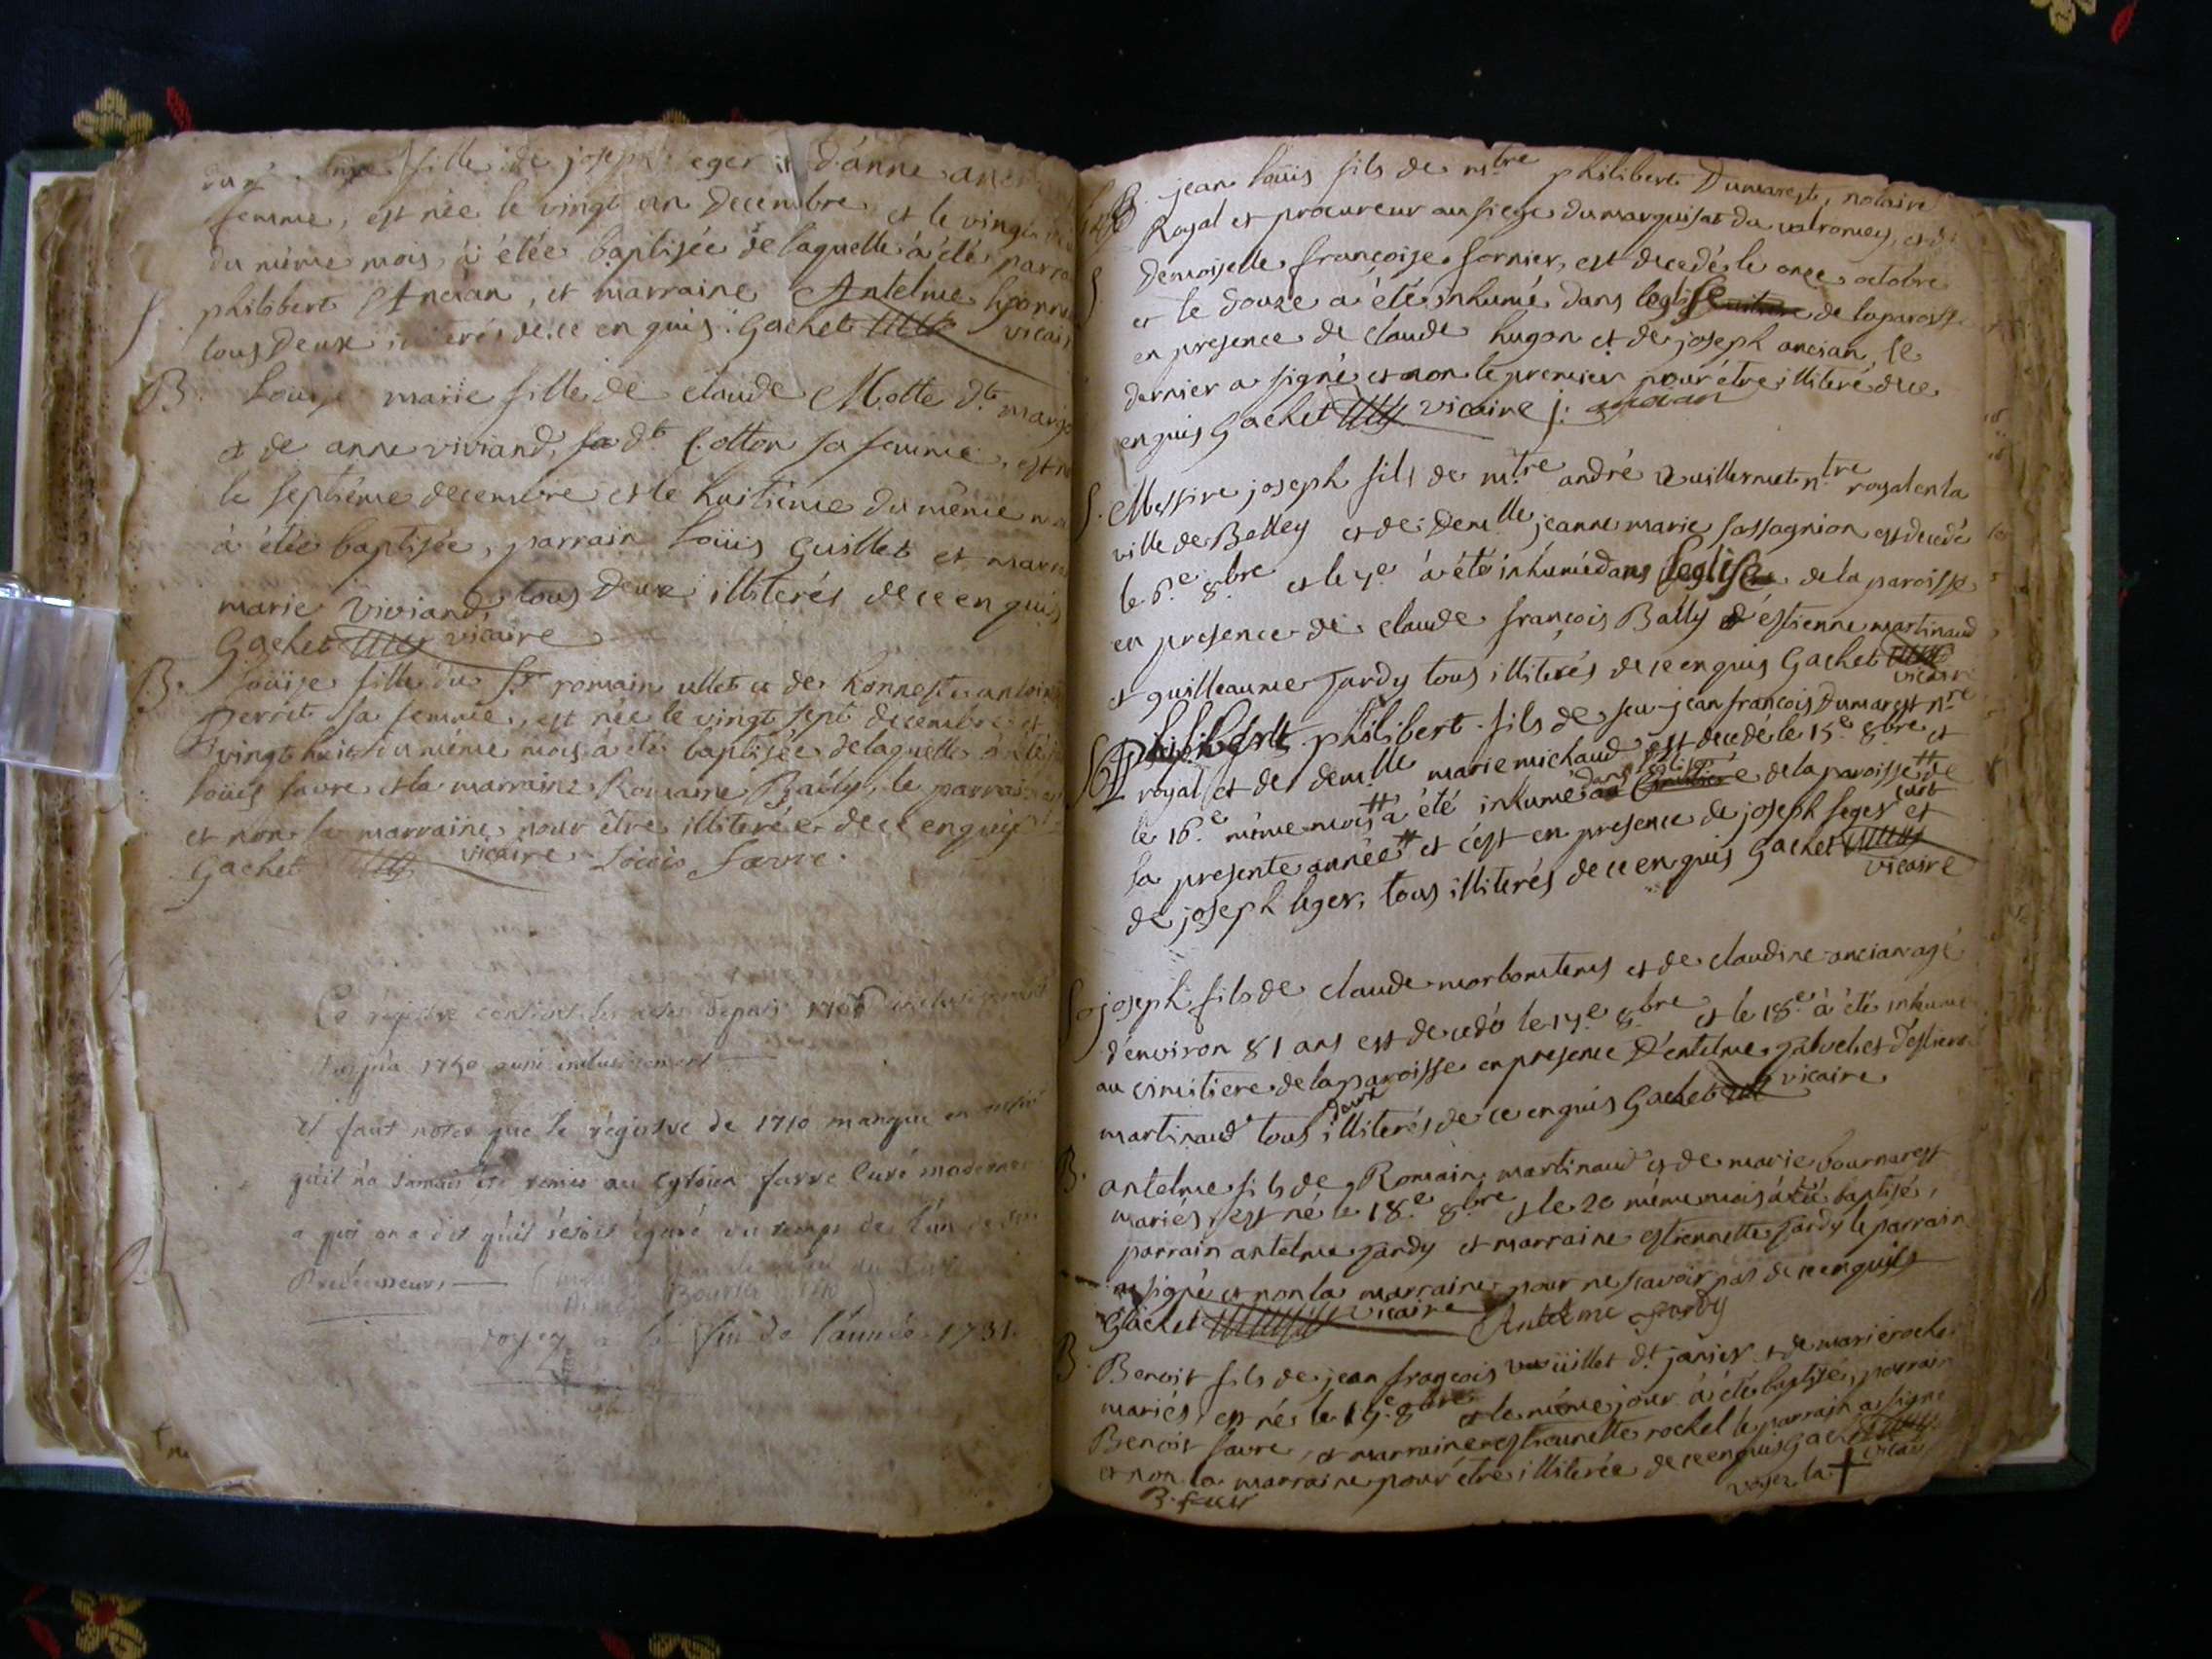 fille de joseph leger et d'anne
femme, est née le vingt un decembre et le vingt
du même mois, à étée baptisée de laquelle à été parra
philibert Ancian, et marraine Antelme
tous deux de ce enquis. Gachet vicaire
B. Louise marie fille de claude Mottet dt
et de anne viviand, sa dt Cotton sa femme, est née
le septiéme decembre et le huitiéme du même
à étée baptisée, parrain Loüis Guillet et marra
marie Viviand, tous deux illiterés de ce enquis
Gachet vicaire
B. Loüise fille du Sr romain ullet et de honneste antoin
Perret sa femme, est née le vingt sept decembre et
vingt huit du même mois à été baptisée de laquelle à été
Loüis favre et la marraine Romaine Bailly, le parrain
et non la marraine pour être illiterée de ce enquis
Gachet vicaire Loüis favre.
Ce registre contient les actes depuis inclusivement
jusqu'a 1740 aussi inclusivement
il faut noter que le régistre de 1710 manque
qu'il n'a jamais été remis au Cytoien favre Curé moderne
a qui on a dit qu'il s'étoit égaré du temps de l'un de ses
Prédécesseurs
voyez a la fin de l'année 1731.
jean loüis fils de mtre philibert Dumarest, notaire
Royal et procureur au siege du marquisat du valromey, et de
S. Demoiselle françoise fornier, est decedé le onze octobre
et le douze a été inhumé dans leglise de la paroisse
en presence de claude hugon et de joseph ancian, le
dernier a signé et non le premier pour être illiteré de ce
enquis Gachet vicaire j: ancian
S. Messire joseph fils de mtre andré Vuillermet ntre royal en la
ville de Belley et de demlle jeanne marie sassagnion est decedé
le 6e 8bre et le 7e à été inhumé dans leglise de la paroisse
en presence de claude françois Bally d'estienne martinaud
et guilleaume Jardy tous illiterés de ce enquis Gachet
vicaire
S philibert fils de feu jean françois dumarest nre
royal et de demlle marie michaud est decedé le 15e 8bre et
le 16e même mois à été inhumé dans l'eglise de la paroisse de
la presente année et c'est en presence de joseph leger et
de joseph leger, tous illiterés de ce enquis Gachet
vicaire
S joseph fils de claude et de claudine ancian agé
d'environ 81 ans est decedé le 17e 8bre et le 18e à été inhumé
au cimitiere de la paroisse en presence d'entelme et d'estienne
martinaud tous deux illiterés de ce enquis Gachet vicaire
B. antelme fils de Romain martinaud et de marie bournarest
mariés, est né le 18e 8bre et le 20 même mois à été baptisé,
parrain antelme Jardy et marraine estiennette Jardy le parrain
a signé et non la marraine pour ne scavoir pas de ce enquis
Gachet vicaire Antelme Jardy
B. Benoit fils de jean françois vuüillet dt janier et de marie rochet
mariés, est né le 19e 8bre et le même jour à été baptisé, parrain
Benoit favre, et marraine estiennette rochet le parrain a signé
et non la marraine pour être illiterée de ce enquis Gachet vicaire
voyez la †